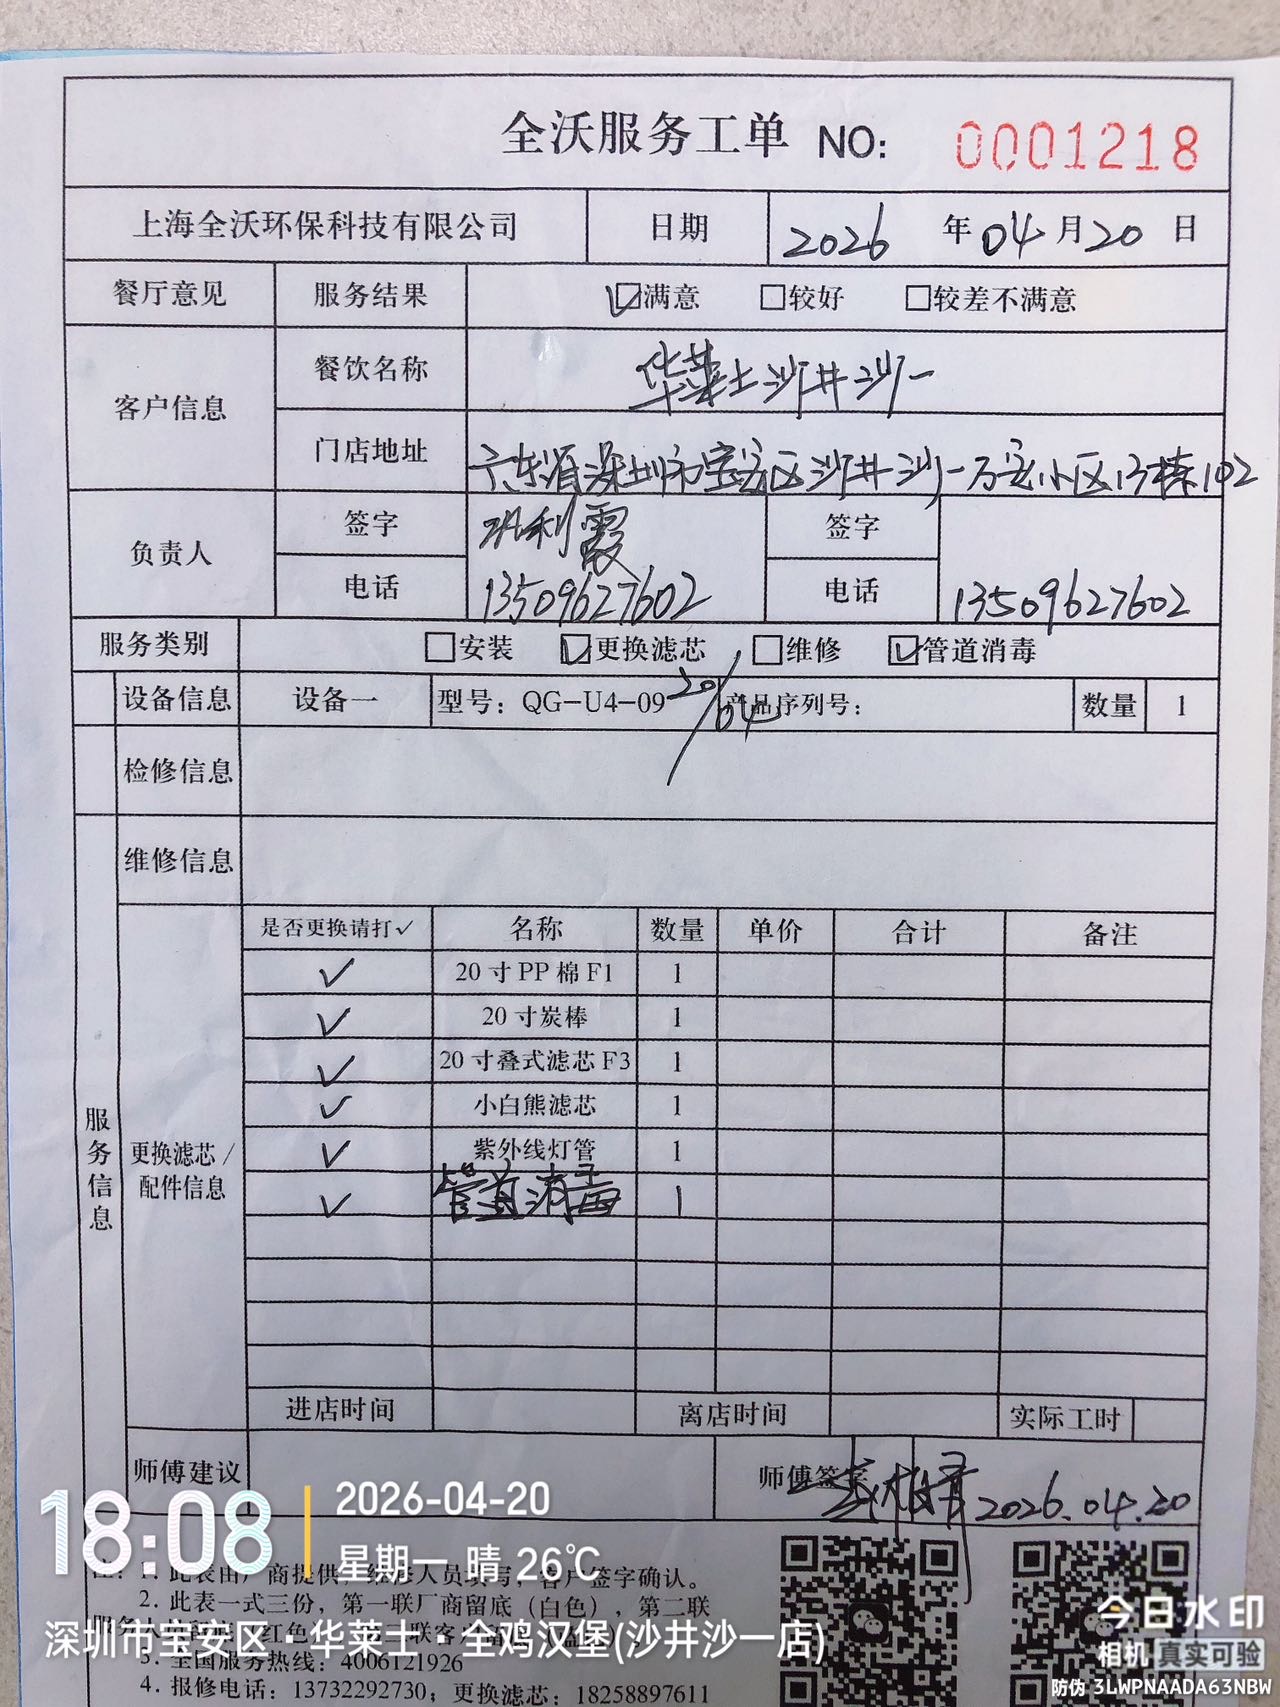 全沃服务工单 NO: 0001218
上海全沃环保科技有限公司 日期 2026 年 04 月 20 日
餐厅意见 服务结果 ☑满意 □较好 □较差不满意
客户信息 餐饮名称 华莱士沙井沙一
门店地址 广东省深圳市宝安区沙井沙一万安小区13栋102
负责人 签字 利霞 签字
电话 13509627602 电话 13509627602
服务类别 □安装 ☑更换滤芯 □维修 ☑管道消毒
设备信息 设备一 型号：QG-U4-09 20/04 产品序列号： 数量 1
检修信息
维修信息
服务信息
更换滤芯/配件信息
是否更换请打✓ 名称 数量 单价 合计 备注
✓ 20寸PP棉F1 1
✓ 20寸炭棒 1
✓ 20寸叠式滤芯F3 1
✓ 小白熊滤芯 1
✓ 紫外线灯管 1
✓ 管道消毒 1
进店时间 离店时间 实际工时
师傅建议 师傅签字 2026.04.20
18:08 2026-04-20
星期一 晴 26℃
注：1. 此表由厂商提供，维修人员填写，客户签字确认。
2. 此表一式三份，第一联厂商留底（白色），第二联
深圳市宝安区·华莱士·全鸡汉堡(沙井沙一店)
3. 全国服务热线：4006121926
4. 报修电话：13732292730；更换滤芯：18258897611
今日水印
相机 真实可验
防伪 3LWPNAADA63NBW